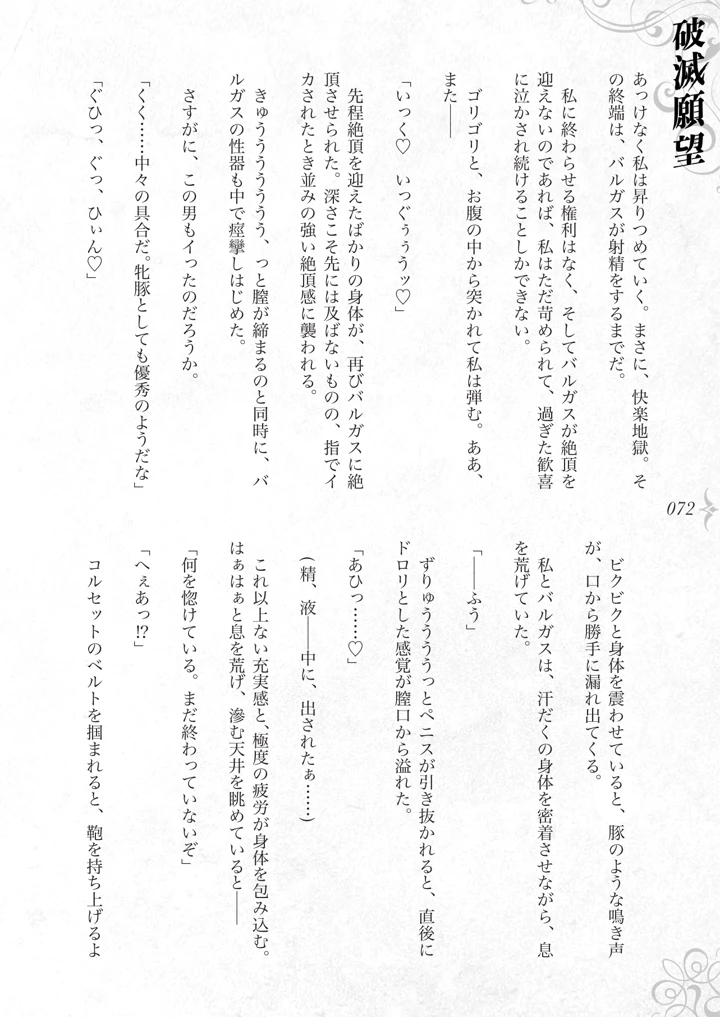 破滅願望
あっけなく私は昇りつめていく。まさに、快楽地獄。そ
の終端は、バルガスが射精をするまでだ。
私に終わらせる権利はなく、そしてバルガスが絶頂を
迎えないのであれば、私はただ苛められて、過ぎた歓喜
に泣かされ続けることしかできない。
ゴリゴリと、お腹の中から突かれて私は弾む。ああ、
また――
「いっく♡　いっぐぅぅうッ♡」
先程絶頂を迎えたばかりの身体が、再びバルガスに絶
頂させられた。深さこそ先には及ばないものの、指でイ
カされたとき並みの強い絶頂感に襲われる。
きゅうううううう、っと膣が締まるのと同時に、バ
ルガスの性器も中で痙攣しはじめた。
さすがに、この男もイったのだろうか。
「くく……中々の具合だ。牝豚としても優秀のようだな」
「ぐひっ、ぐっ、ひぃん♡」
072
ビクビクと身体を震わせていると、豚のような鳴き声
が、口から勝手に漏れ出てくる。
私とバルガスは、汗だくの身体を密着させながら、息
を荒げていた。
「――ふう」
ずりゅううううっとペニスが引き抜かれると、直後に
ドロリとした感覚が膣口から溢れた。
「あひっ……♡」
(精、液――中に、出されたぁ……)
これ以上ない充実感と、極度の疲労が身体を包み込む。
はぁはぁと息を荒げ、滲む天井を眺めていると――
「何を惚けている。まだ終わっていないぞ」
「へぇあっ!?」
コルセットのベルトを掴まれると、鞄を持ち上げるよ